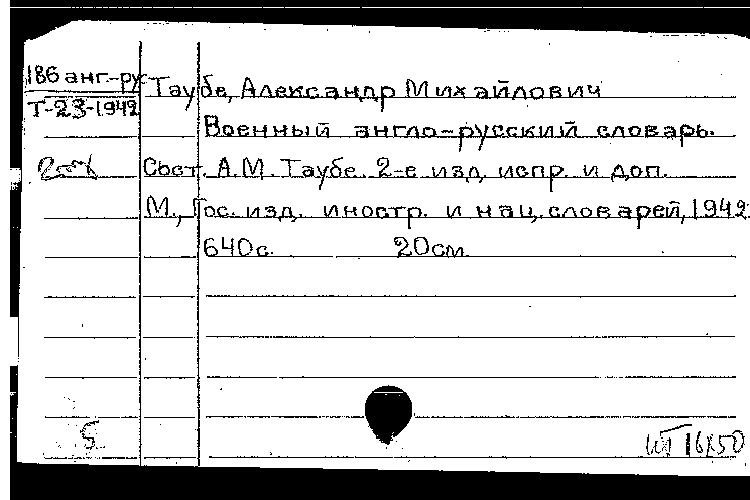 186 анг-рус Таубе, Александр Михайлович
Т-23-1942
Военный англо-русский словарь.
Сост. А.М. Таубе. 2-е изд. испр. и доп.
М., Гос. изд. иностр. и нац. словарей, 1942
640с. 20см.
5